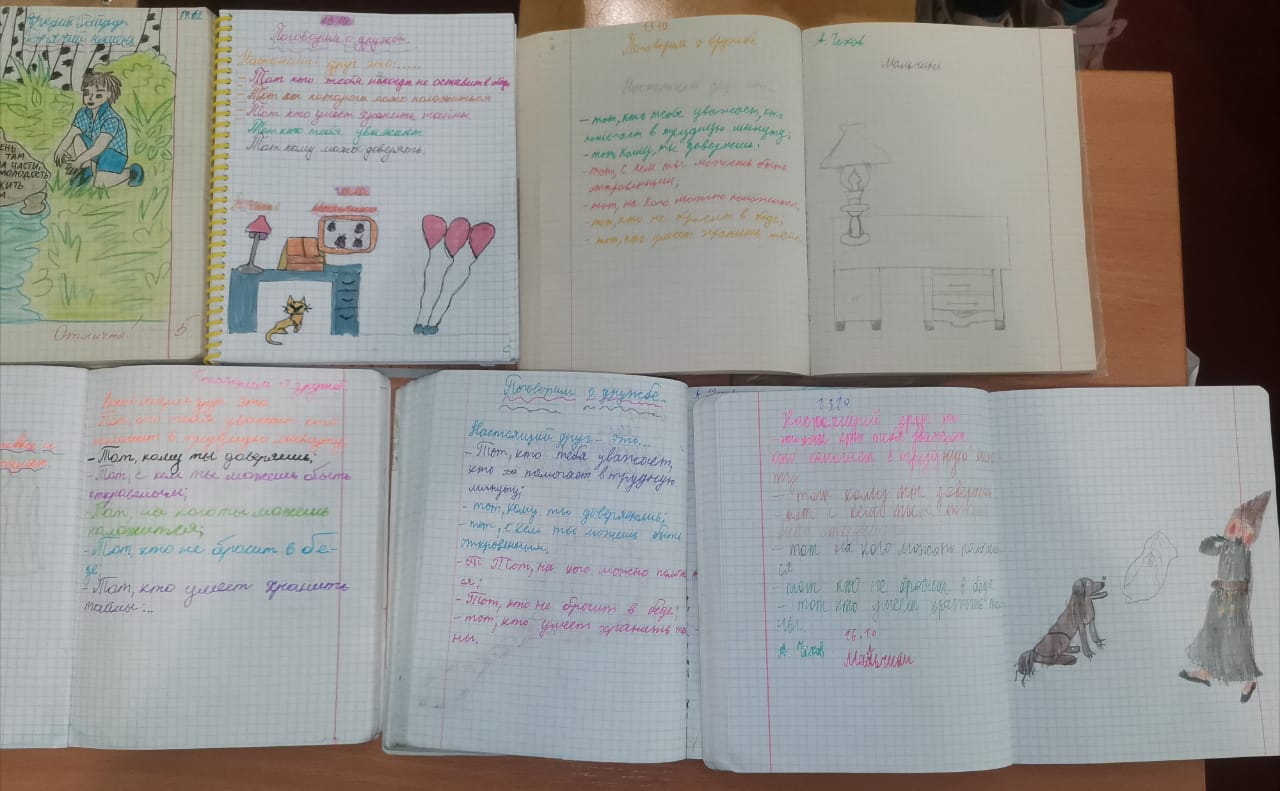 19.02
ЕНЬ
ТАМ
А ЧАСТИ,
МОЛОДОСТЬ
ЖИТЬ
Отлично! 5
13.10
Поговорим о дружбе.
Настоящий друг это:......
- Тот кто тебя никогда не оставит в беде
- Тот на которого можно положиться
- Тот кто умеет хранить тайны.
- Тот кто тебя уважает.
Тот кому можно доверять.
13.10
Поговорим о дружбе
Настоящий друг это...
- тот, кто тебя уважает, кто
помогает в трудную минуту;
- тот, кому, ты доверяешь;
- тот, с кем ты можешь быть
откровенным;
- тот, на кого можно положиться
- тот, кто не бросит в беде;
- тот, кто умеет хранить тайн
А. Чехов
Мальчики
Поговорим о дружбе
Настоящий друг это
Тот, кто тебя уважает кто
помогает в трудную минуту
- Тот, кому ты доверяешь;
- Тот, с кем ты можеть быть
откровеным;
- Тот, на кого ты можешь
положиться;
- Тот, кто не бросит в бе-
де;
- Тот, кто умеет хранить
тайны...
Поговорим о дружбе.
Настоящий друг - это...
- Тот, кто тебя уважает,
кто помогает в трудную
минуту;
- тот, кому ты доверяешь;
- тот, с кем ты можешь быть
откровенным.
- Тот, на кого можно полож
ся;
- Тот, кто не бросит в беде;
- тот, кто умеет хранить тай-
ны.
13.10
Настоящий друг
кто тебя уважает
кто помогает в трудную ми
ту
- тот кому ты доверяеш
- тот с кем ты можеш
- тот на кого можно полож
ся
- тот кто не бросит в беде
- тот кто умеет хранить та
15.10
А. Чехов Мальчики